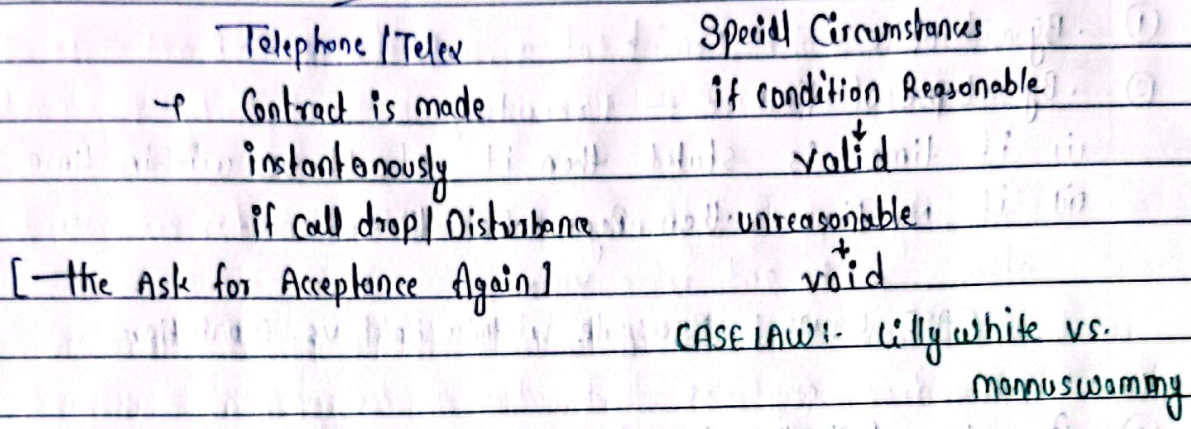 Telephone / Telex
→ Contract is made
instantanously
if call drop / Disturbance
[ the Ask for Acceptance Again]
Special Circumstances
if condition Reasonable
↓
valid
unreasonable
↓
void
CASE LAW:- Lilly white vs.
mannuswammy